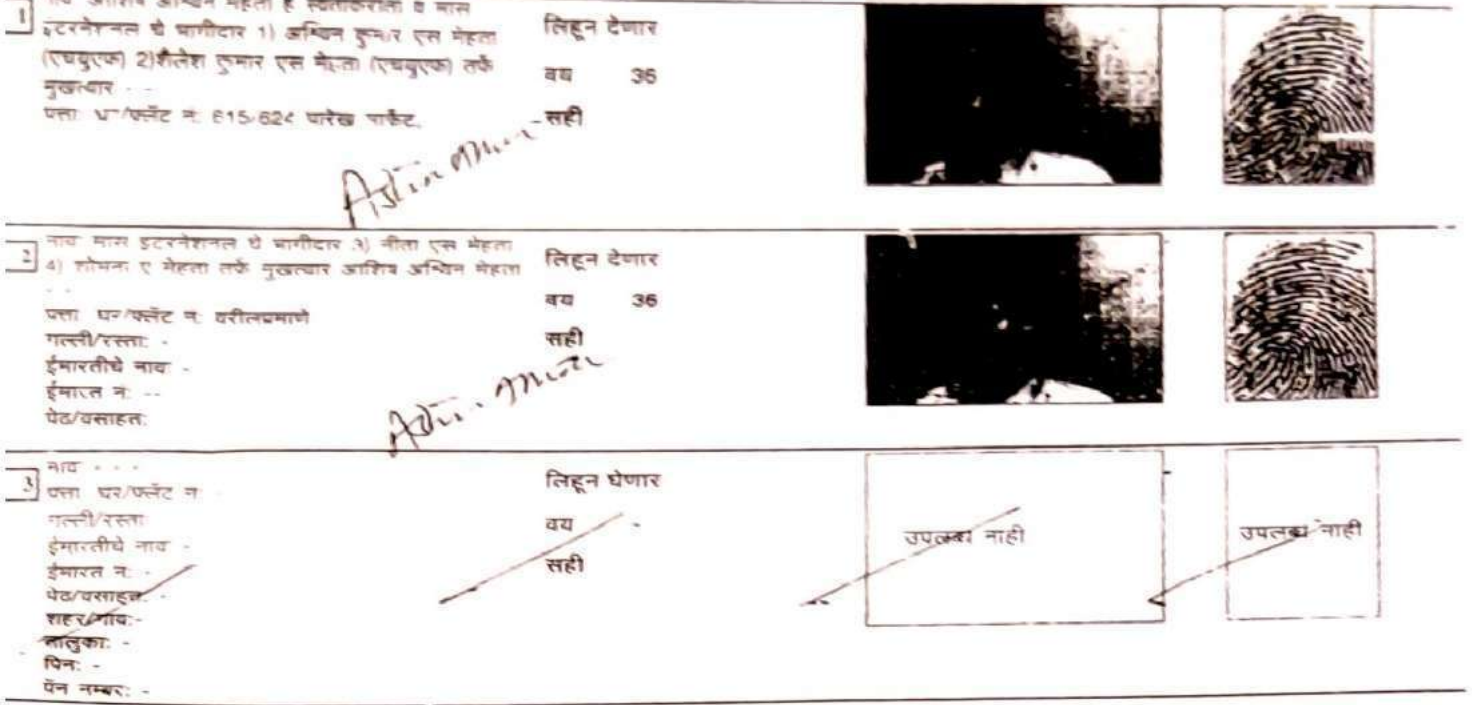 1
नाव आशिष अश्विन मेहता हे स्वताकरीता व मास
इटरनेशनल चे भागीदार 1) अश्विन कुमार एस मेहता
(एचयुएफ) 2)शैलेश कुमार एस मेहता (एचयुएफ) तर्फे
मुखत्यार - -
पत्ता घर/फ्लॅट नं: 615/624 पारेख मार्केट,
लिहून देणार
वय 36
सही
2
नाव मास इटरनेशनल चे भागीदार 3) नीता एस मेहता
4) शोभना ए मेहता तर्फे मुखत्यार आशिष अश्विन मेहता
- -
पत्ता घर/फ्लॅट नं: वरीलप्रमाणे
गल्ली/रस्ता: -
ईमारतीचे नाव: -
ईमारत नं: --
पेठ/वसाहत:
लिहून देणार
वय 36
सही
3
नाव - - -
पत्ता घर/फ्लॅट नं: -
गल्ली/रस्ता:
ईमारतीचे नाव -
ईमारत नं: -
पेठ/वसाहत: -
शहर/गाव:-
तालुका: -
पिन: -
पॅन नम्बर: -
लिहून घेणार
वय -
सही
उपलब्ध नाही
उपलब्ध नाही